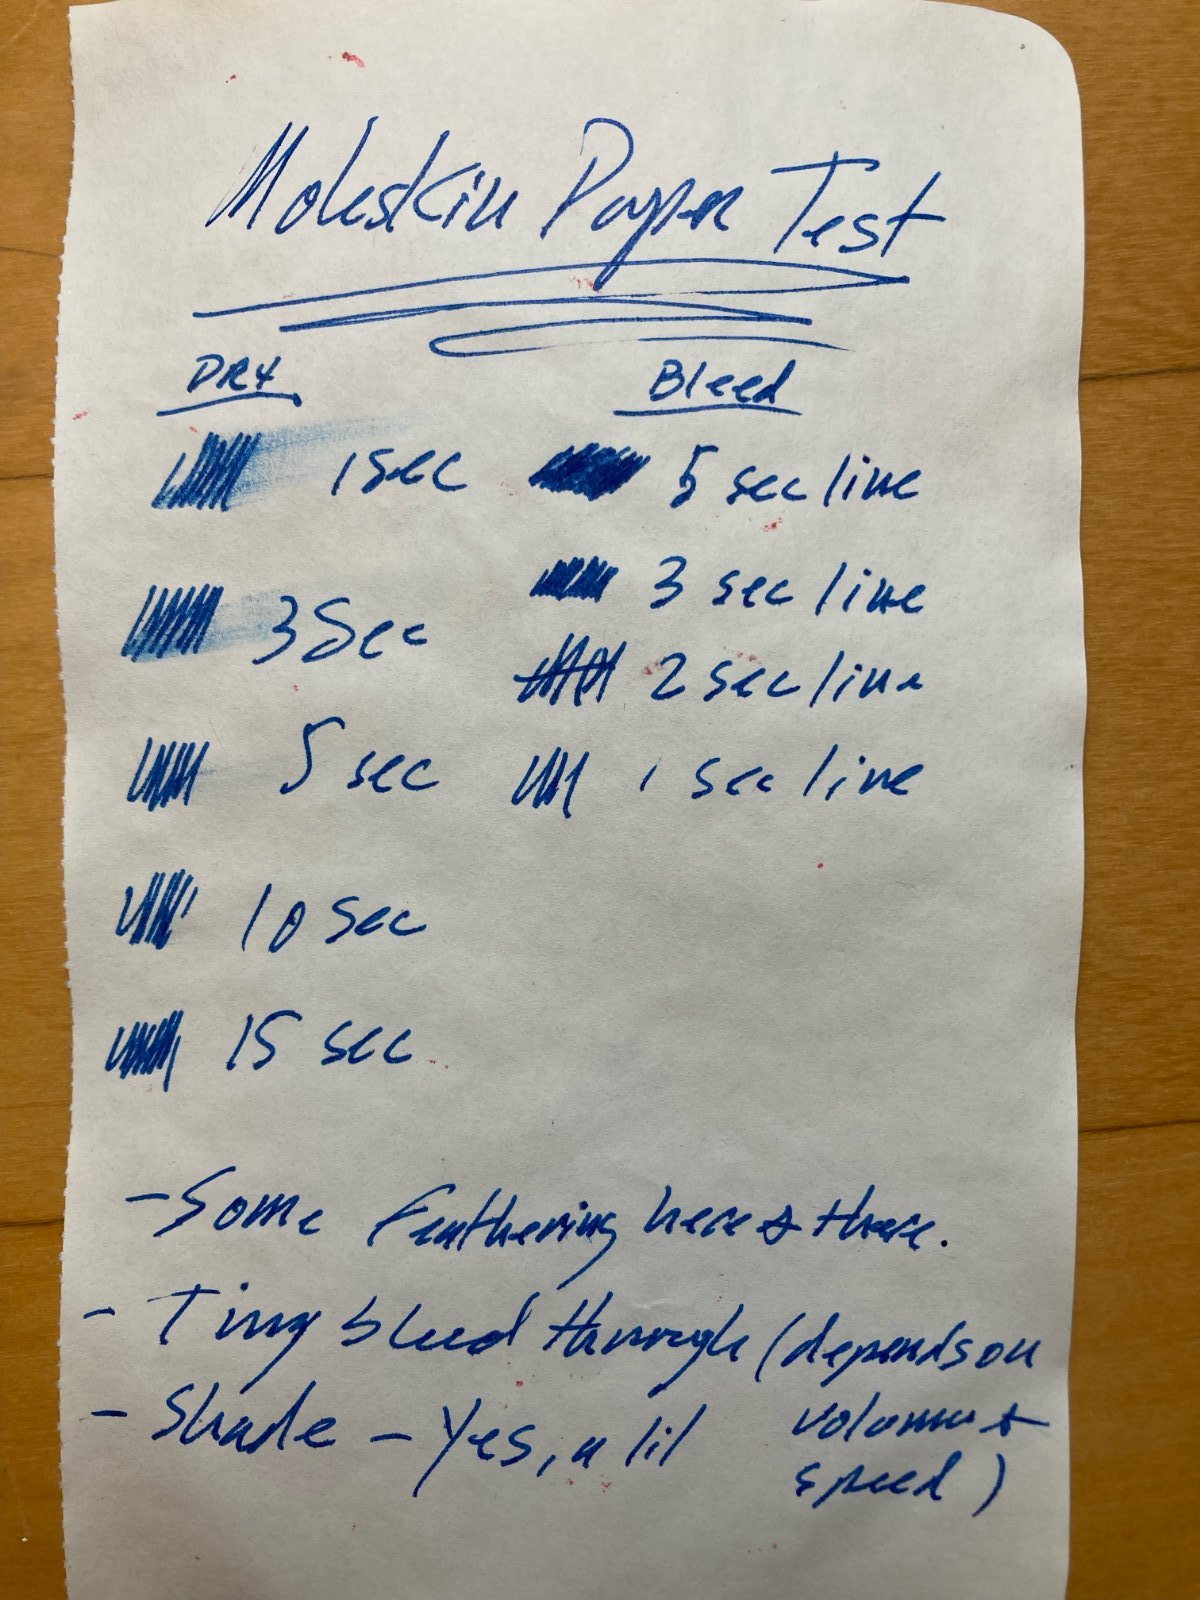 Moleskin Paper Test
Dry
1 sec
3 Sec
5 sec
10 sec
15 sec
Bleed
5 sec line
3 sec line
2 sec line
1 sec line
- Some Feathering here & there.
- Tiny bleed through (depends on
volume +
speed)
- Shade - Yes, a lil